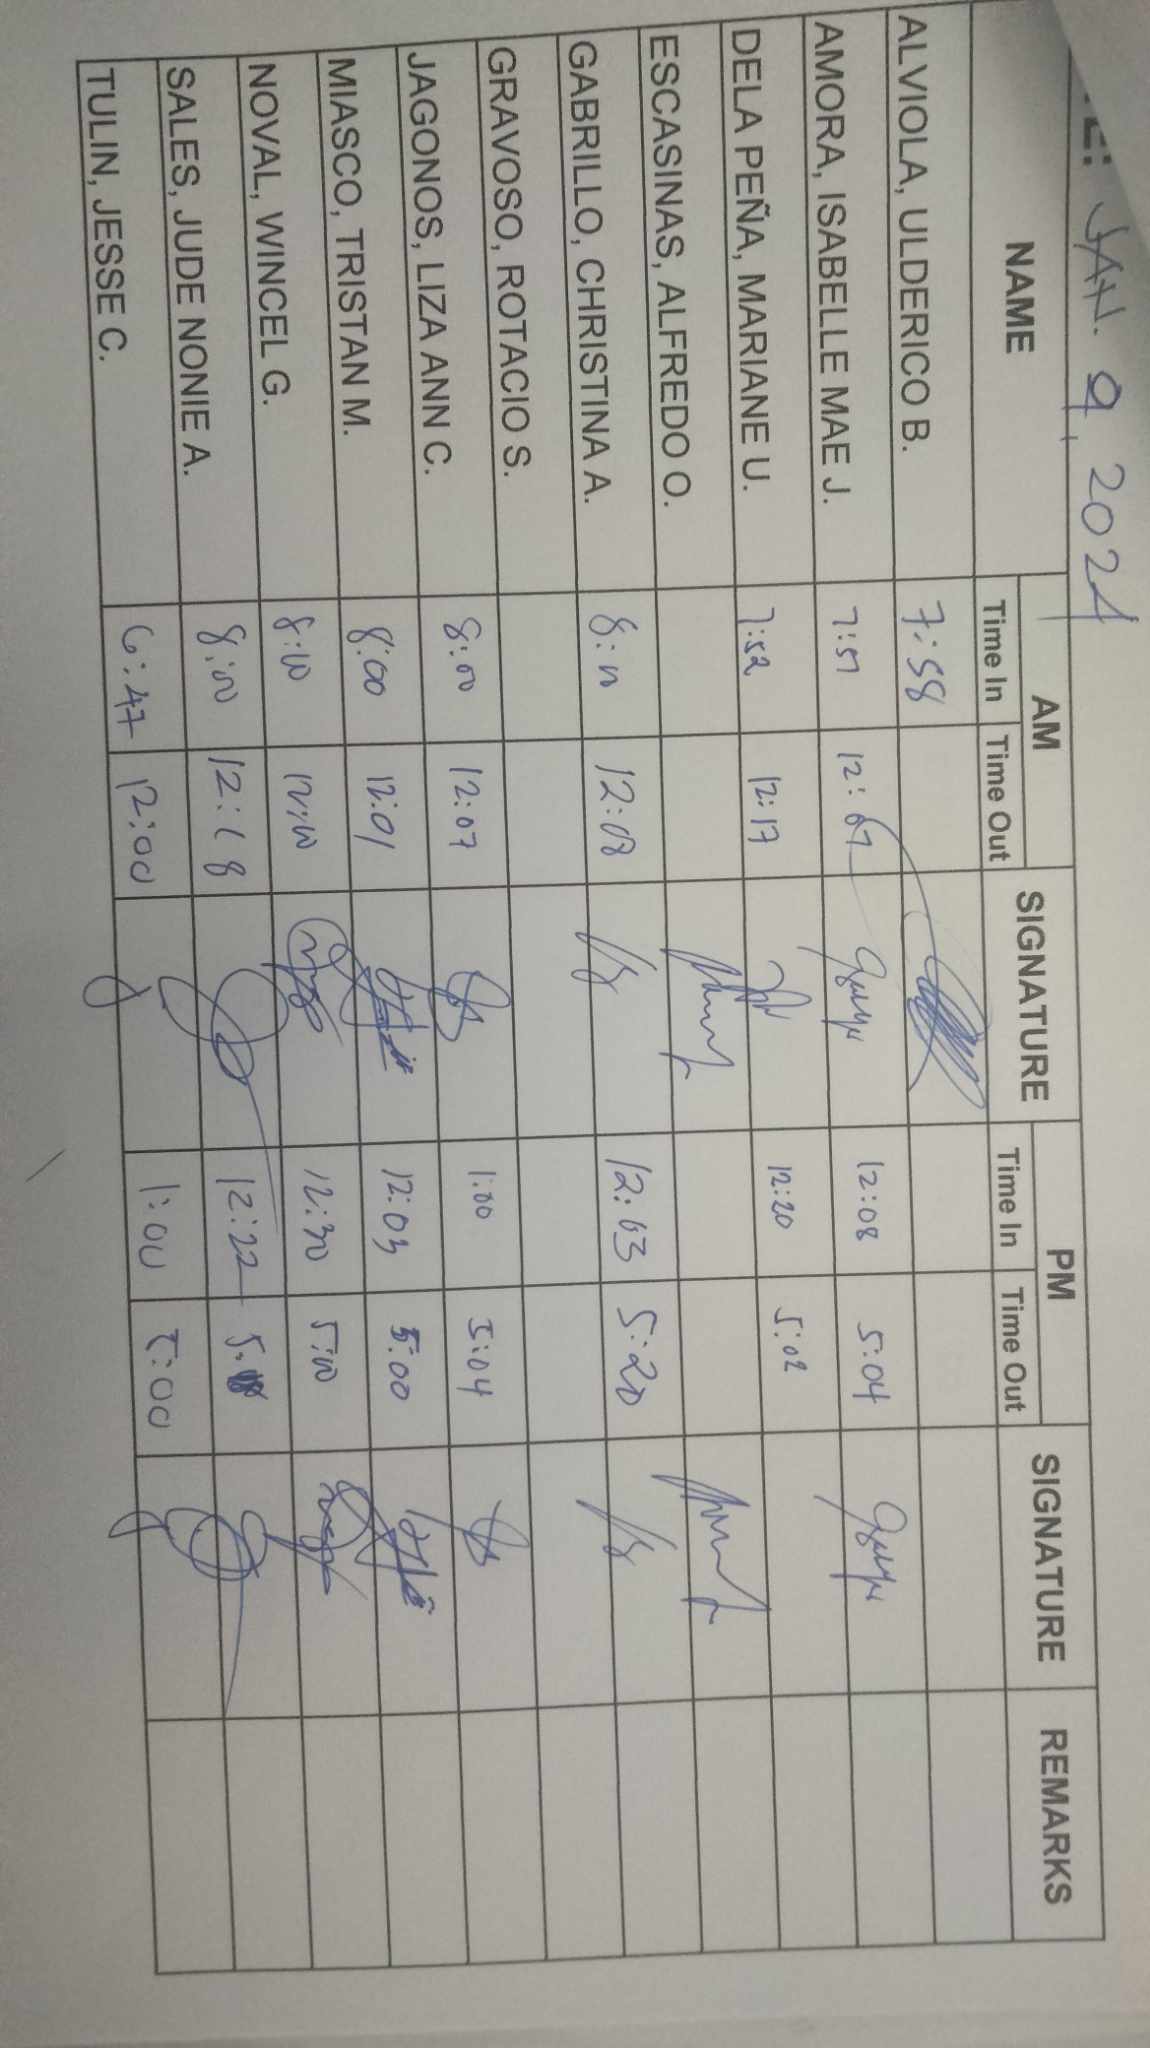 JAN. 9, 2024
NAME AM SIGNATURE PM SIGNATURE REMARKS
Time In Time Out Time In Time Out
ALVIOLA, ULDERICO B. 7:58
AMORA, ISABELLE MAE J. 7:57 12:07 12:08 5:04
DELA PEÑA, MARIANE U. 7:52 12:17 12:20 5:02
ESCASINAS, ALFREDO O.
GABRILLO, CHRISTINA A. 8:00 12:08 12:03 5:20
GRAVOSO, ROTACIO S.
JAGONOS, LIZA ANN C. 8:00 12:07 1:00 5:04
MIASCO, TRISTAN M. 8:00 12:01 12:03 5:00
NOVAL, WINCEL G. 8:00 12:00 12:30 5:00
SALES, JUDE NONIE A. 8:00 12:18 12:22
TULIN, JESSE C. 6:47 12:00 1:00 5:00